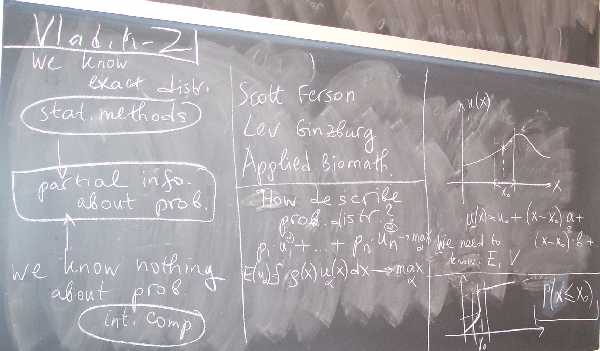 Vladik-2
We know
exact distr.
stat. methods
partial info.
about prob.
we know nothing
about prob.
int. comp
Scott Ferson
Lev Ginzburg
Applied Biomath.
How describe
prob. distr.?
p₁·u₁+...+pₙ·uₙ→max
∫ρ(x)u(x)dx→max
u(x)
x₀
x
u(x)=u₀+(x-x₀)·a+
(x-x₀)²·b+
We need to
know: E, V
P(x≤x₀)
x₀